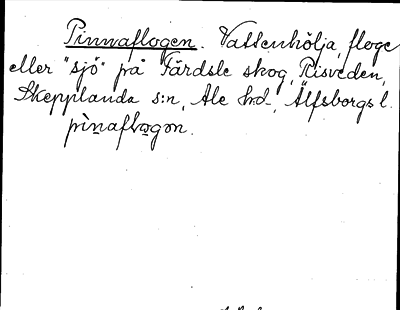 Pinnaflogen. Vattenhölja, floge
eller "sjö" på Färdsle skog, Risveden,
Skepplanda s:n, Ale hd., Älfsborgs l.
pìnaflogon.